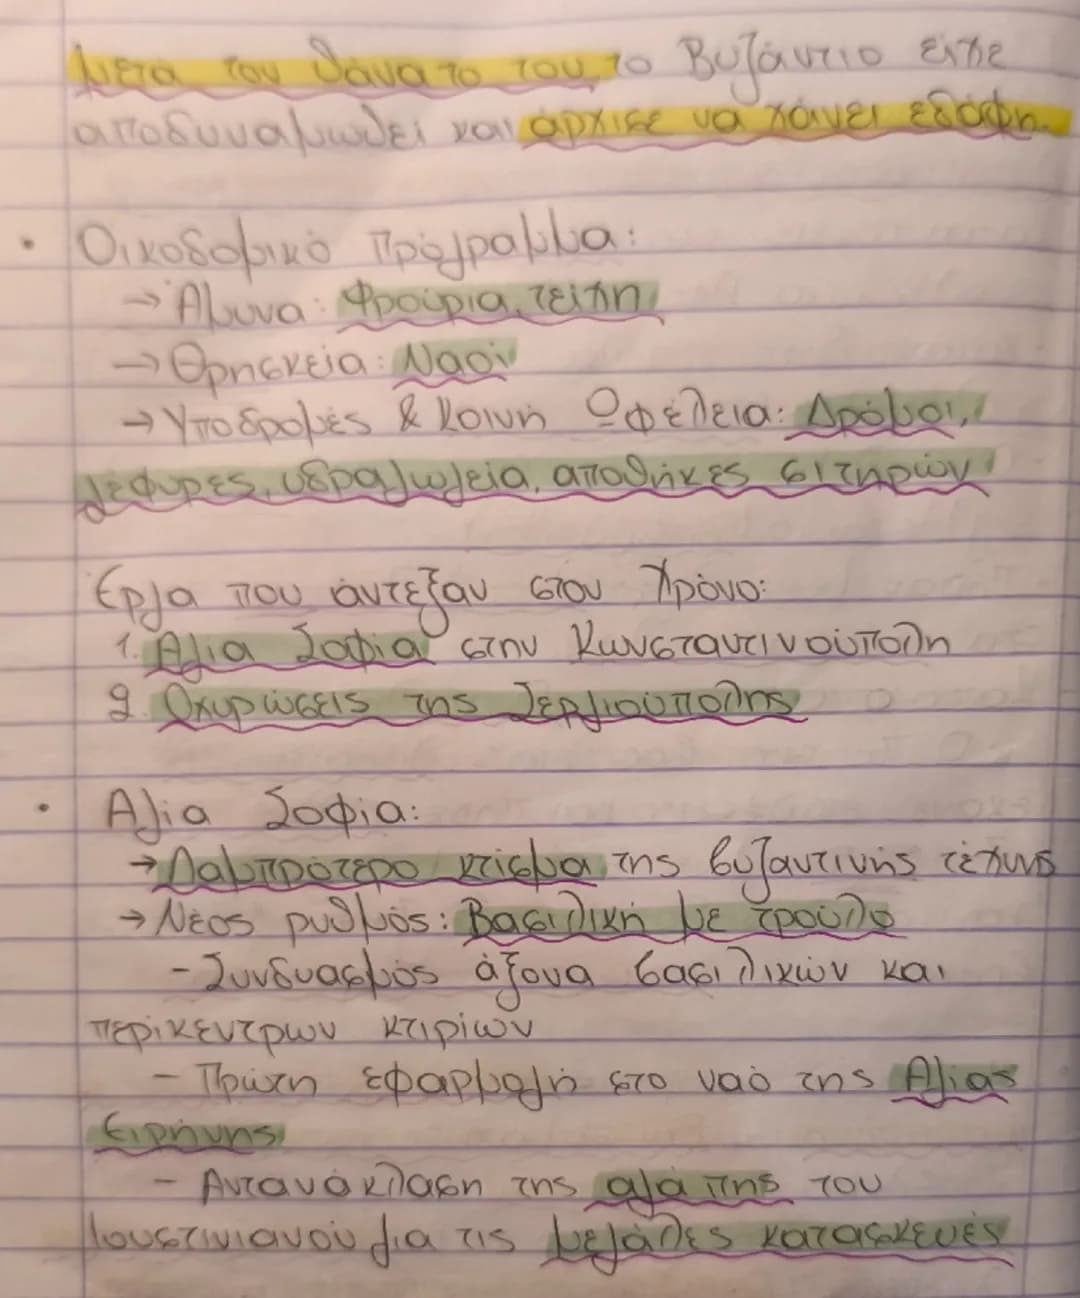 Μετά τον θάνατο του, το Βυζάντιο είχε
αποδυναμωθεί και άρχισε να χάνει εδάφη.
• Οικοδομικό Πρόγραμμα:
→ Άμυνα: Φρούρια, τείχη
→ Θρησκεία: Ναοί
→ Υποδρομές & Κοινή Ωφέλεια: Δρόμοι,
γέφυρες, υδραγωγεία, αποθήκες σιτηρών
Έργα που άντεξαν στον Χρόνο:
1. Αγία Σοφία στην Κωνσταντινούπολη
2. Οχυρώσεις της Σεργιούπολης
• Αγία Σοφία:
→ Λαμπρότερο κτίσμα της βυζαντινής τέχνης
→ Νέος ρυθμός: Βασιλική με τρούλο
- Συνδυασμός άξονα βασιλικών και
περίκεντρων κτιρίων
- Πρώτη εφαρμογή στο ναό της Αγίας
Ειρήνης
- Αντανάκλαση της αγάπης του
Ιουστινιανού για τις μεγάλες κατασκευές